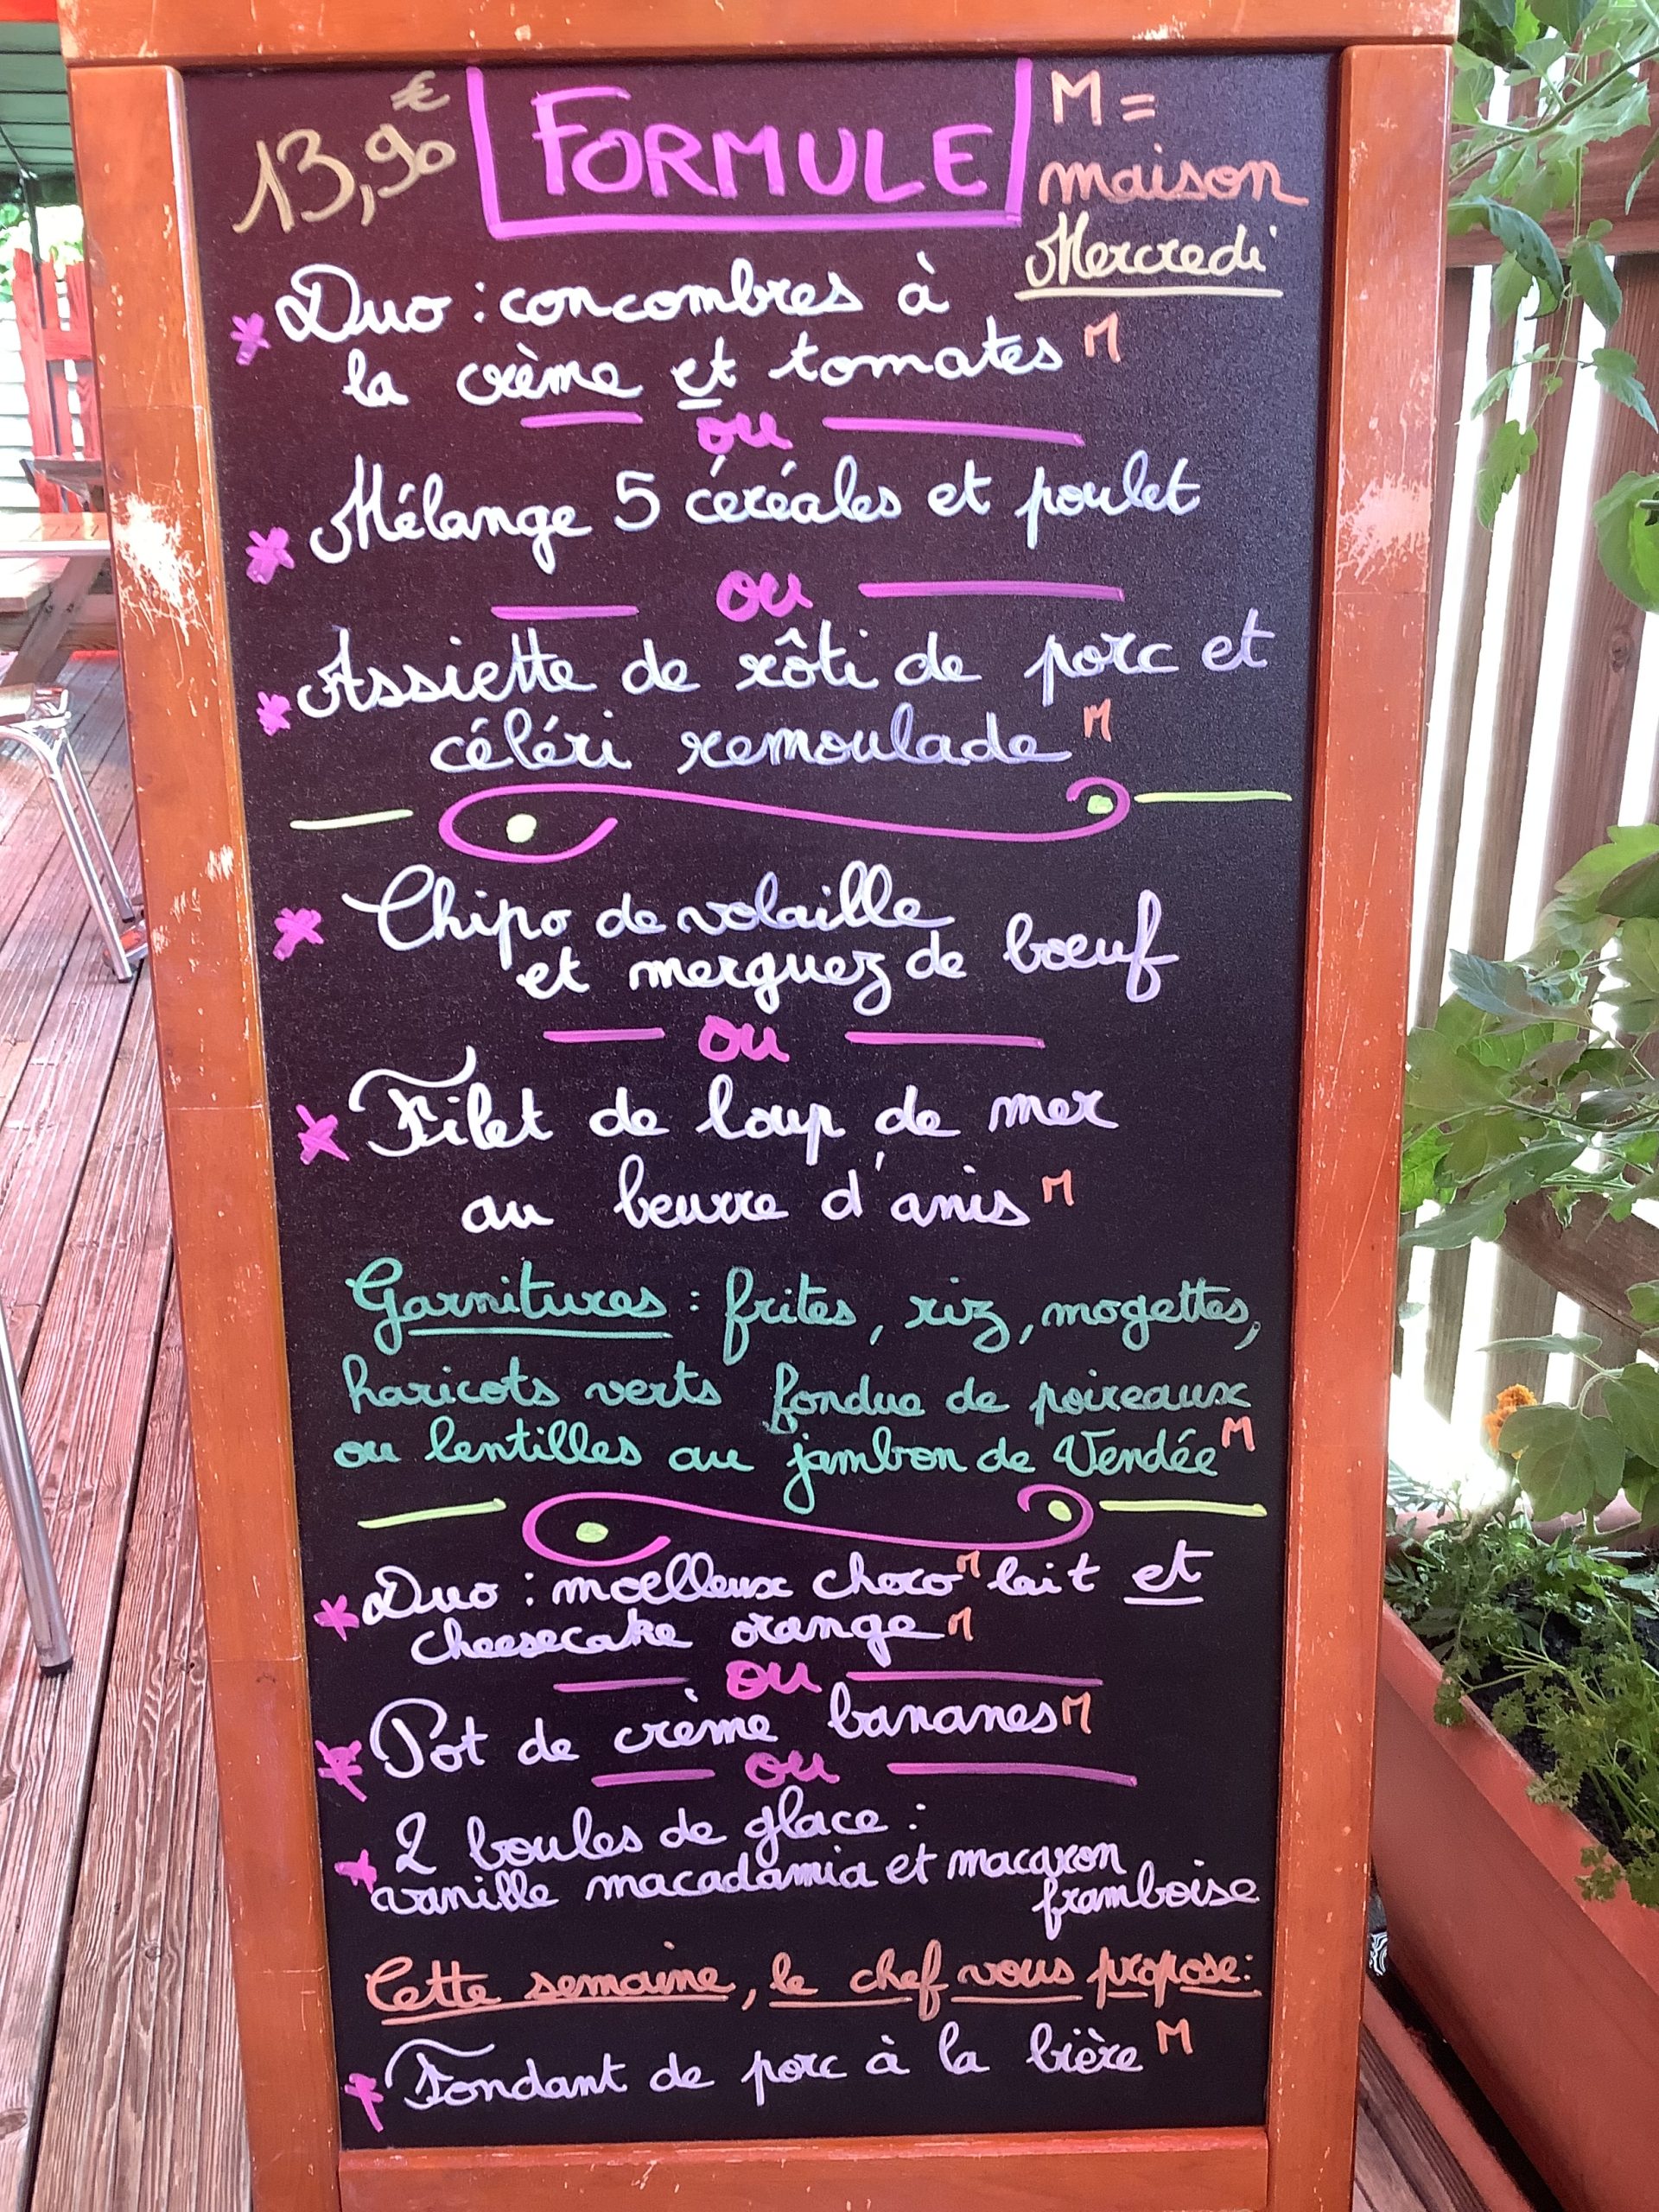 13,90 €
FORMULE
M =
maison
Mercredi
* Duo : concombres à
la crème et tomates M
ou
* Mélange 5 céréales et poulet
ou
* Assiette de rôti de porc et
céléri remoulade M
* Chipo de volaille
et merguez de boeuf
ou
* Filet de loup de mer
au beurre d'anis M
Garnitures : frites, riz, mogettes,
haricots verts fondue de poireaux
ou lentilles au jambon de Vendée M
* Duo : moelleux choco M lait et
cheesecake orange M
ou
* Pot de crème bananes M
ou
* 2 boules de glace :
vanille macadamia et macaron
framboise
Cette semaine, le chef vous propose :
* Fondant de porc à la bière M